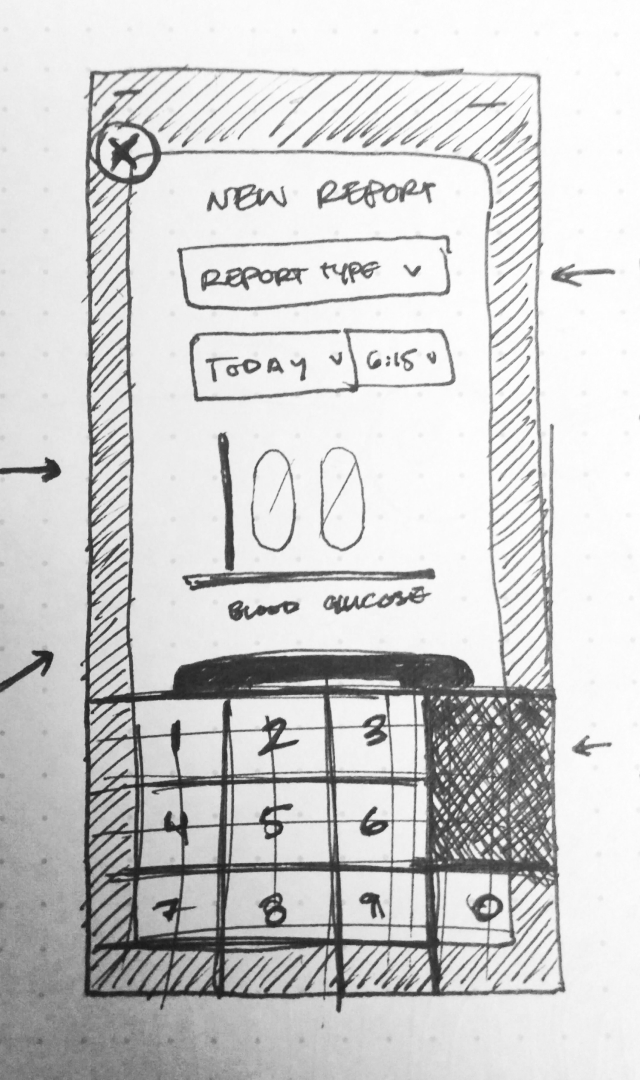 X
NEW REPORT
REPORT TYPE
TODAY 6:15
00
BLOOD GLUCOSE
1 2 3
4 5 6
7 8 9 0